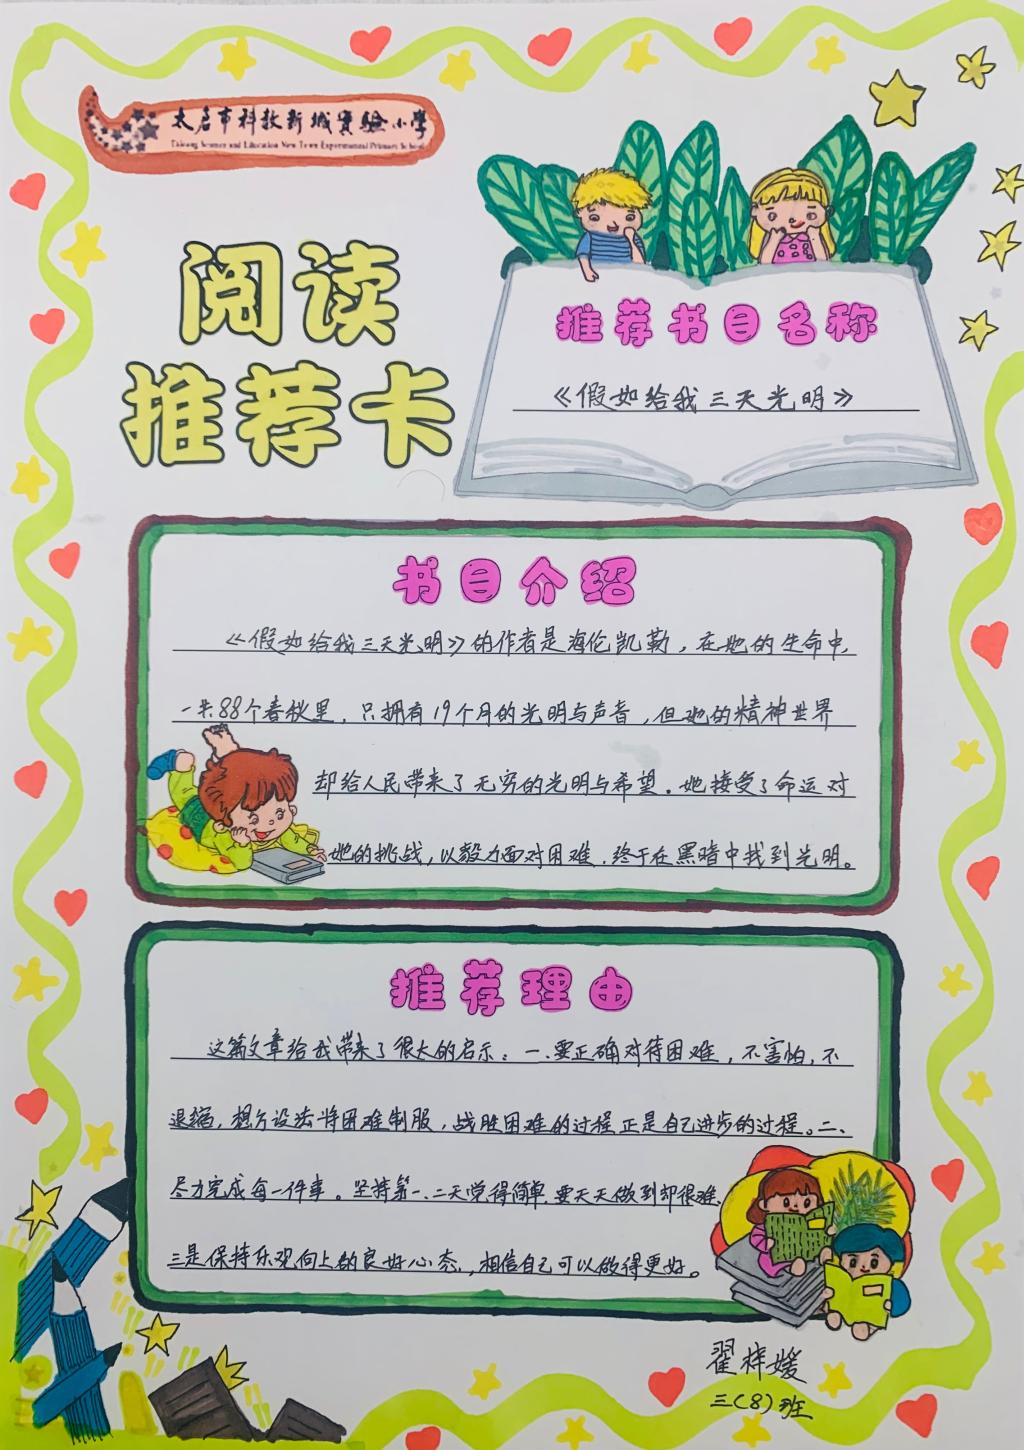 太启市科教新城實驗小學
Taicang Science and Education New Town Experimental Primary School
阅读
推荐卡
推荐书目名称
《假如给我三天光明》
书目介绍
《假如给我三天光明》的作者是海伦凯勒，在她的生命中，
一共88个春秋里，只拥有19个月的光明与声音，但她的精神世界
却给人民带来了无穷的光明与希望。她接受了命运对
她的挑战，以毅力面对困难，终于在黑暗中找到光明。
推荐理由
这篇文章给我带来了很大的启示：一、要正确对待困难，不害怕，不
退缩，想方设法将困难制服，战胜困难的过程正是自己进步的过程。二、
尽力完成每一件事。坚持第一、二天觉得简单，要天天做到却很难、
三是保持乐观向上的良好心态，相信自己可以做得更好。
翟梓媛
三（8）班